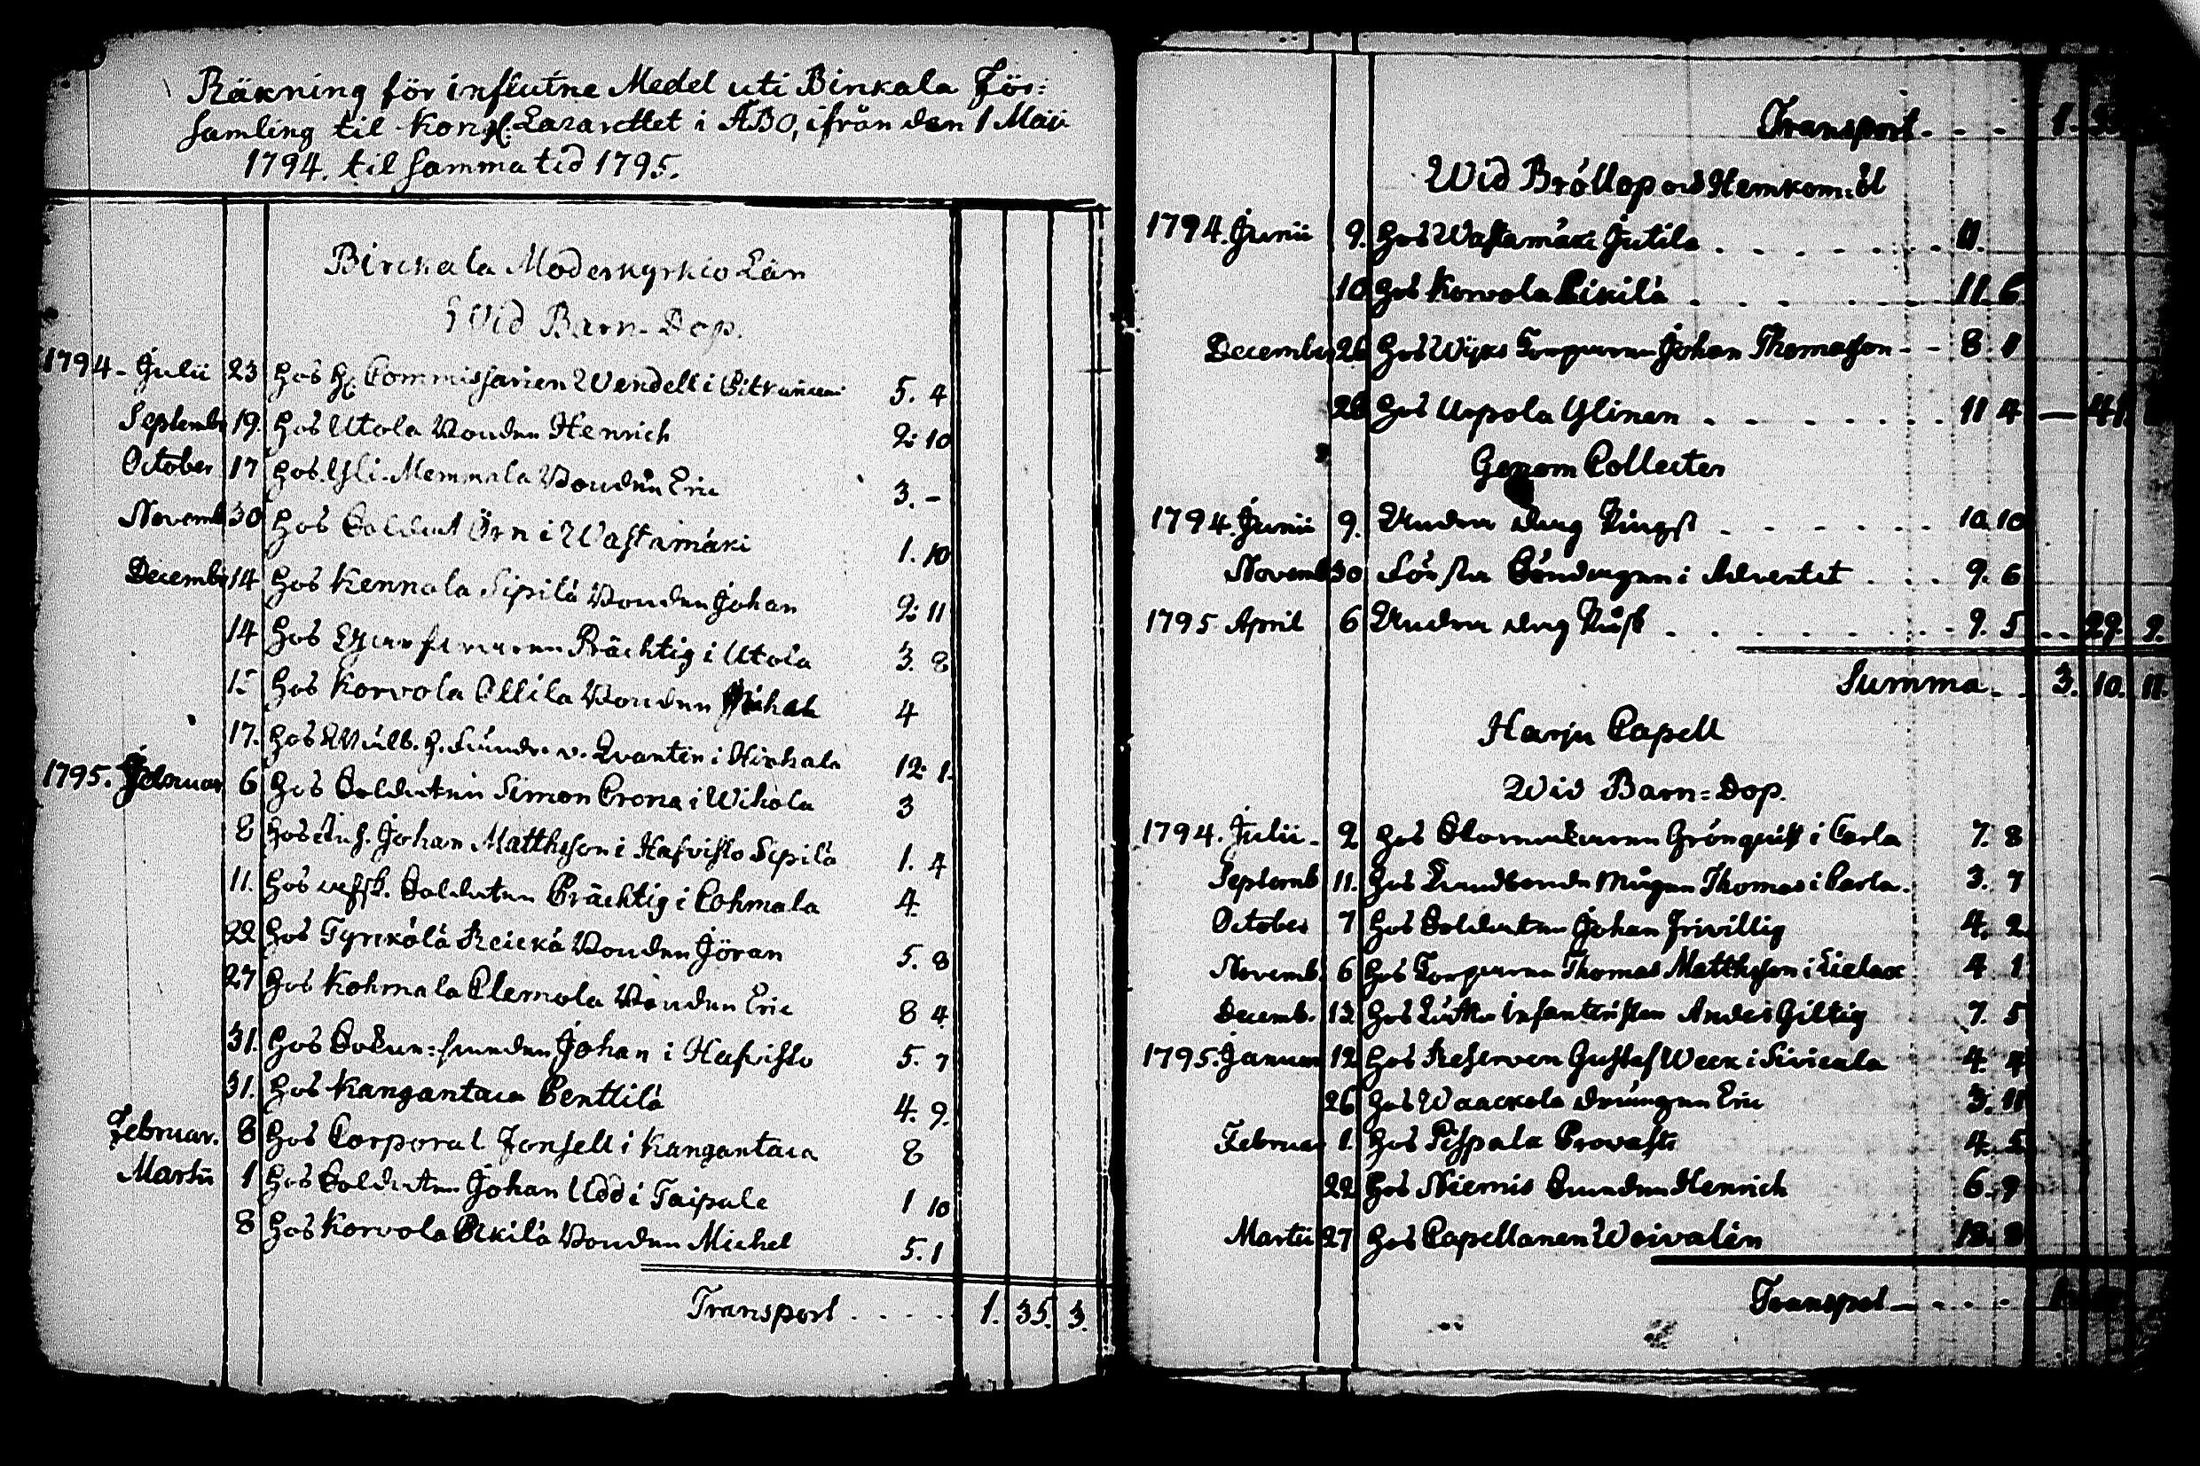 Räkning för influtne Medel uti Birkala För:
samling til Kongl. Lazarettet i ÅBO, ifrån den 1 Maii
1794. til samma tid 1795.
Birckala Moderkyrkio Län
Wid Barn-Dop.
1794 - Julii 23 hos H. Commissarien Wendell i Pitkäniemi 5. 4
Septemb. 19. hos Utola Bonden Henrich 2: 10
October 17 hos Yli-Memmala Bonden Eric 3. -
Novemb 30 hos Soldat Örn i Wastamäki 1. 10
Decemb. 14 hos Kennola Sipilä Bonden Johan 2: 11
14 hos Prächtig i Utola 3. 8
15 hos Korvola Ollila Bonden Michel 4
17. hos v. Qvanten i Hirhala 12: 1.
1795. Januar 6 hos Soldaten Simon Crona i Wikola 3
8 hos Johan Matthsson i Hafvisto Sipilä 1. 4
11. hos afsk. Soldaten Prächtig i Lohmala 4.
22 hos Tyrckölä Reickä Bonden Jöran 5. 8
27 hos Kohmala Clemola Bonden Eric 8 4.
31. hos Johan i Hafvisto 5. 7
31. hos Kangantaca Penttilä 4. 9.
Februar. 8 hos Corporal Jonsell i Kangantaca 8
Martii 1 hos Soldaten Johan Udd i Taipale 1 10
8 hos Korvola Pikilä Bonden Michel 5. 1
Transport . . . . 1. 35. 3.
Transport . . . . 1.
Wid Bröllop och Hemkom:öl
1794. Junii 9. hos Wastamäki Jutila . . . . . . . 11.
10 hos Korvola Pikilä . . . . . . 11. 6
December 26 hos Wijks Torparen Johan Thomasson - - 8 1
26 hos Uspola Ylinen . . . . . . . 11 4 — 41.
Genom Collecter
1794. Junii 9. Andra dag Pingst . . . . . . 10. 10
Novemb 30 Första Söndagen i Adventet . . . 9. 6
1795 April 6 Andra dag Påsk . . . . . . . 9. 5 - - 29. 9.
Summa . . 3. 10. 11.
Harju Capell
Wid Barn=Dop.
1794. Julii - 2 hos Grönquist i Carla 7. 8
Septemb 11. hos Thomas i Parla . 3. 7
October 7 hos Soldaten Johan Frivillig 4. 2.
Novemb. 6 hos Torparen Thomas Matthsson i Lielax 4 1
Decemb. 12 hos Infanteristen Anders Giltig 7. 5
1795. Januar 12 hos Reserven Gustaf Week i Sivicala 4. 4
26 hos Waackola drängen Eric 3. 11
Februar 1. hos Pispala Provasti 4. 5
22 hos Niemis Bonden Henrich 6. 9
Martii 27 hos Capellanen Weivalén 12. 8
Transport . . . .